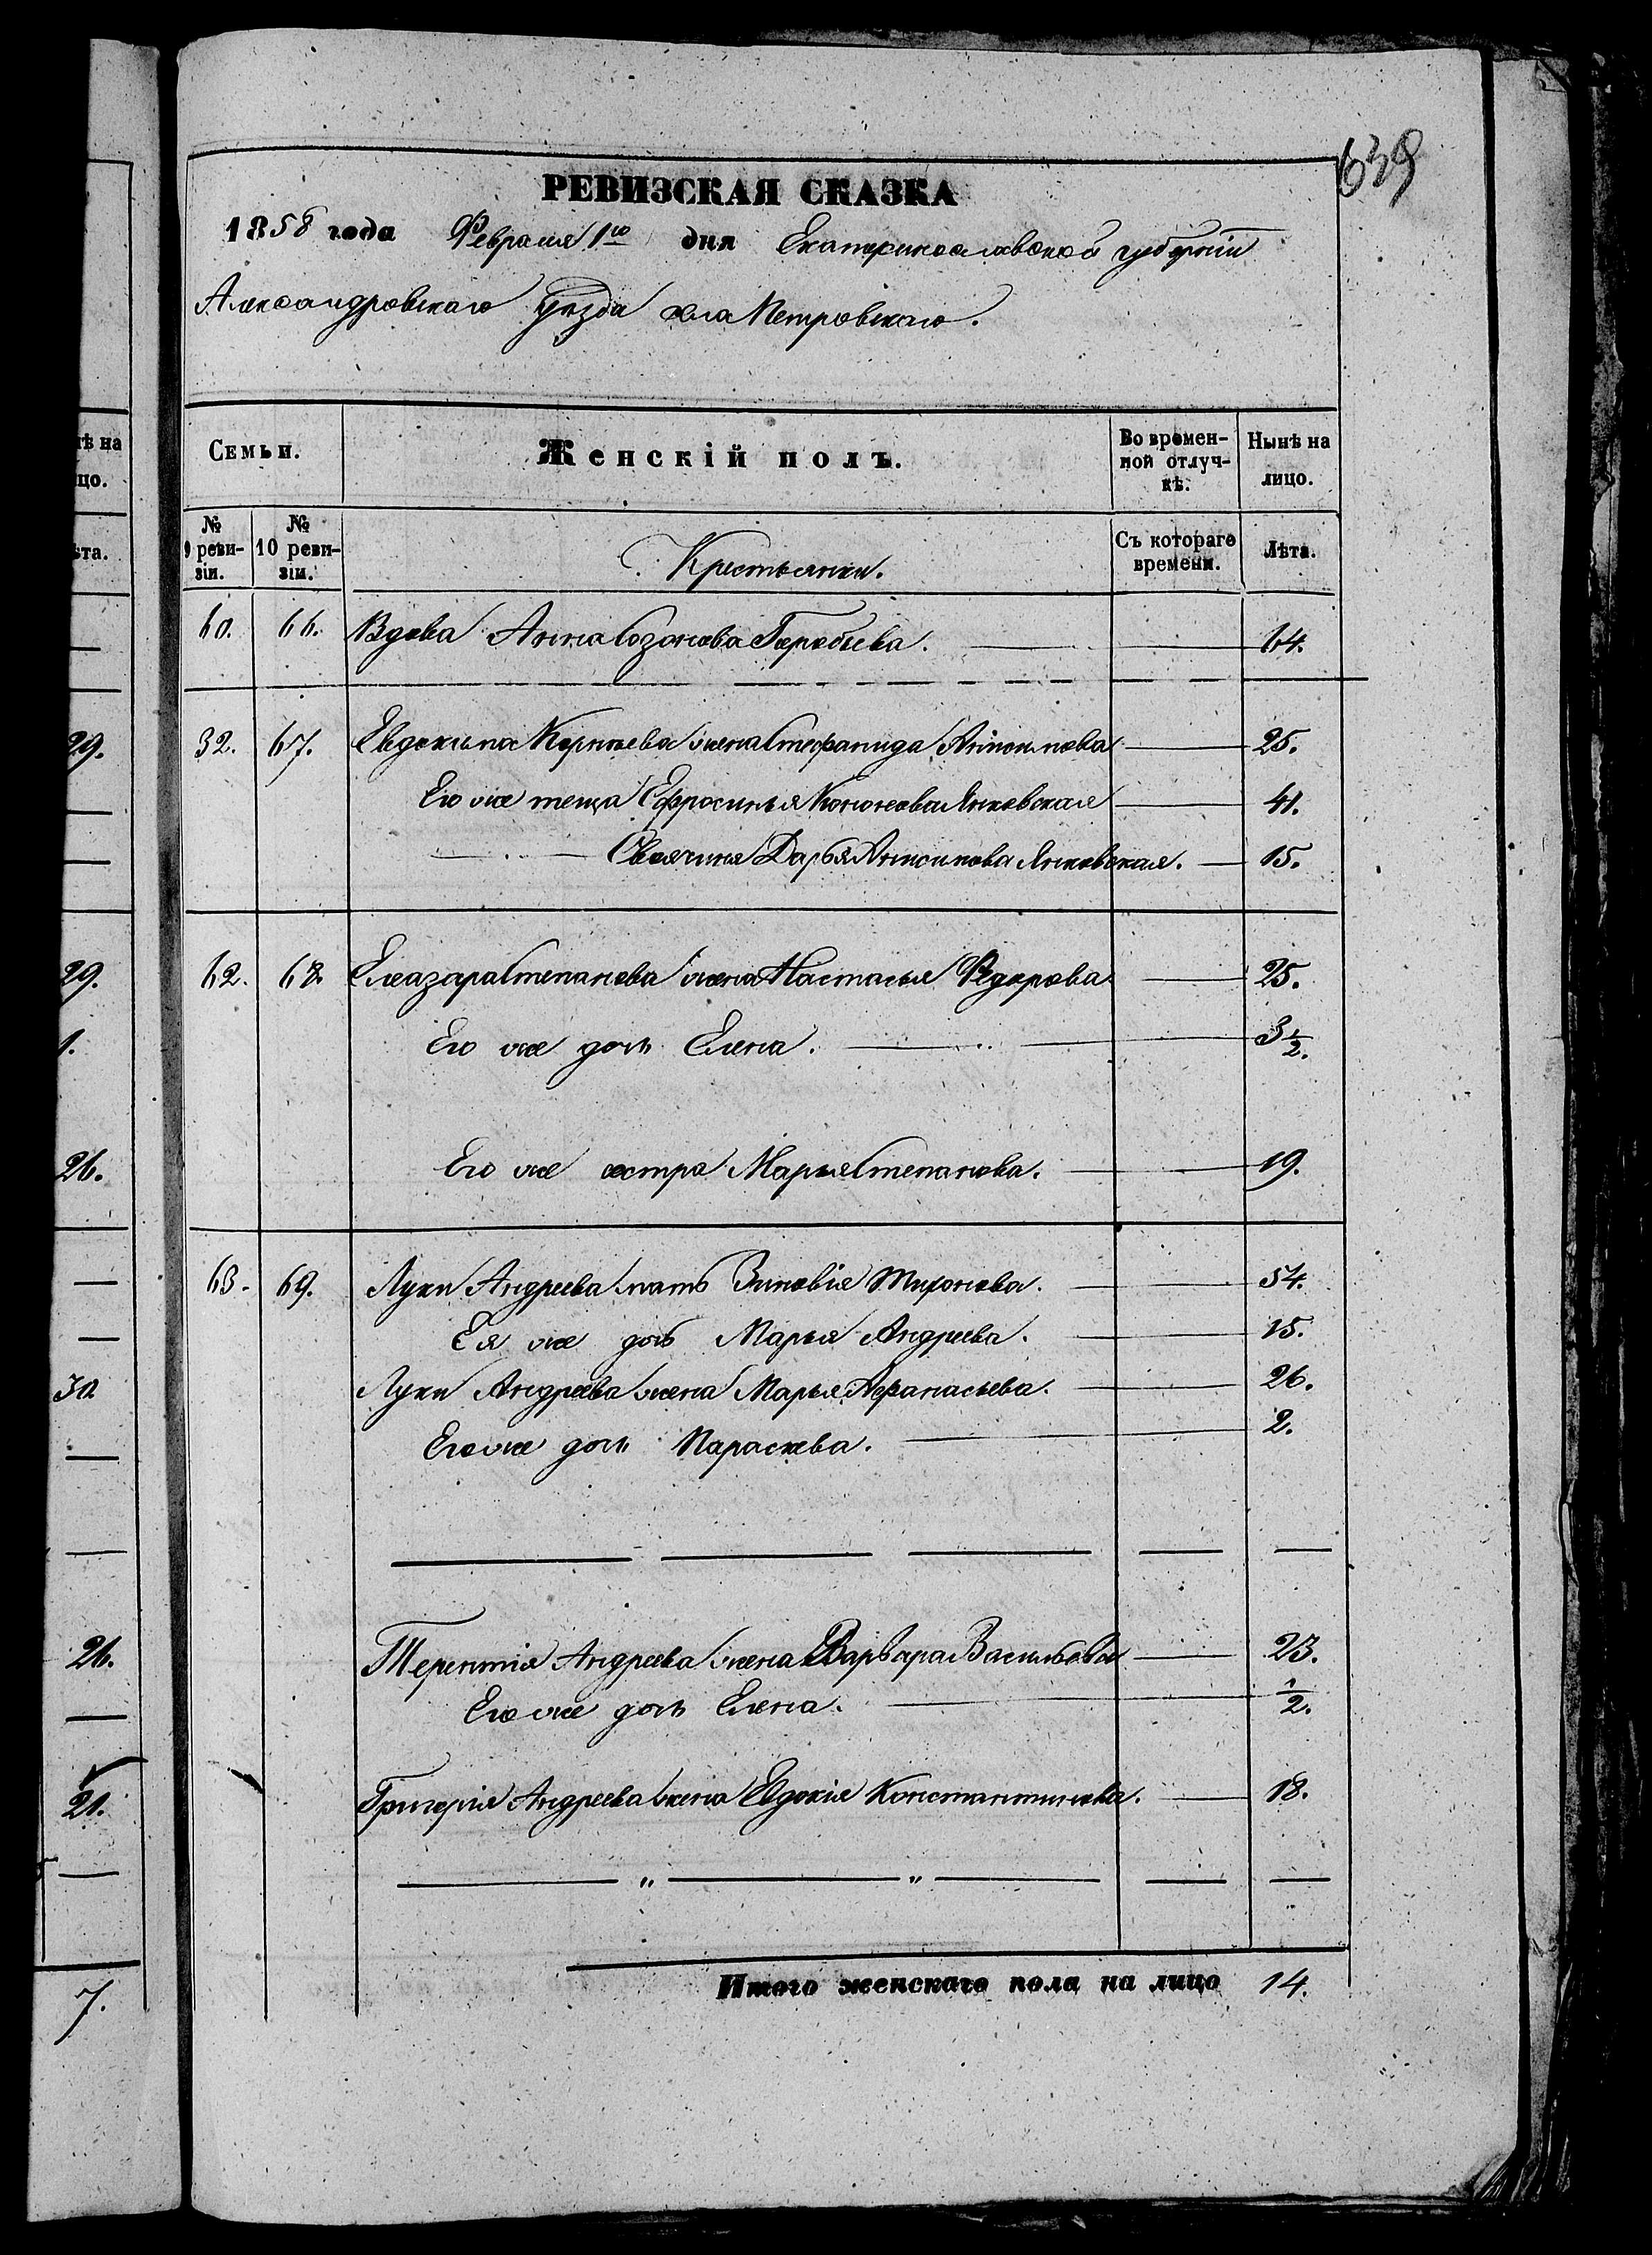 639
РЕВИЗСКАЯ СКАЗКА
1858 года Февраля 1го дня Екатеринославской губернiи
Александровскаго Уѣзда села Петровскаго.
Семьи.
Женскiй полъ.
Во времен-
ной отлуч-
кѣ.
Нынѣ на
лицо.
№
9 реви-
зiи.
№
10 реви-
зiи.
Крестьянки.
Съ котораго
времени.
Лѣта.
60. 66. Вдова Анна Созонова Горобьева. 64.
32. 67. Евдокима Корнѣева жена Стефанида Антонова 25.
Его же теща Ефросинья Кононова Янковская 41.
Своячиня Дарья Анисимова Янковская. 15.
62. 68. Елеазара Степанова жена Настасья Федорова 25.
Его же дочь Елена. 3 1/2.
Его же сестра Марья Степанова. 19.
63. 69. Луки Андреева мать Зиновiя Тихонова. 54.
Ея же дочь Марья Андреева. 15.
Луки Андреева жена Марья Афанасьева. 26.
Его же дочь Параскева. 2.
Терентiя Андреева жена Варвара Васильева 23.
Его же дочь Елена. 1/2.
Григорiя Андреева жена Евдокiя Константинова. 18.
Итого женскаго пола на лицо 14.
нѣ на
цо.
ѣта.
29.
29.
1.
26.
30
26.
21.
7.